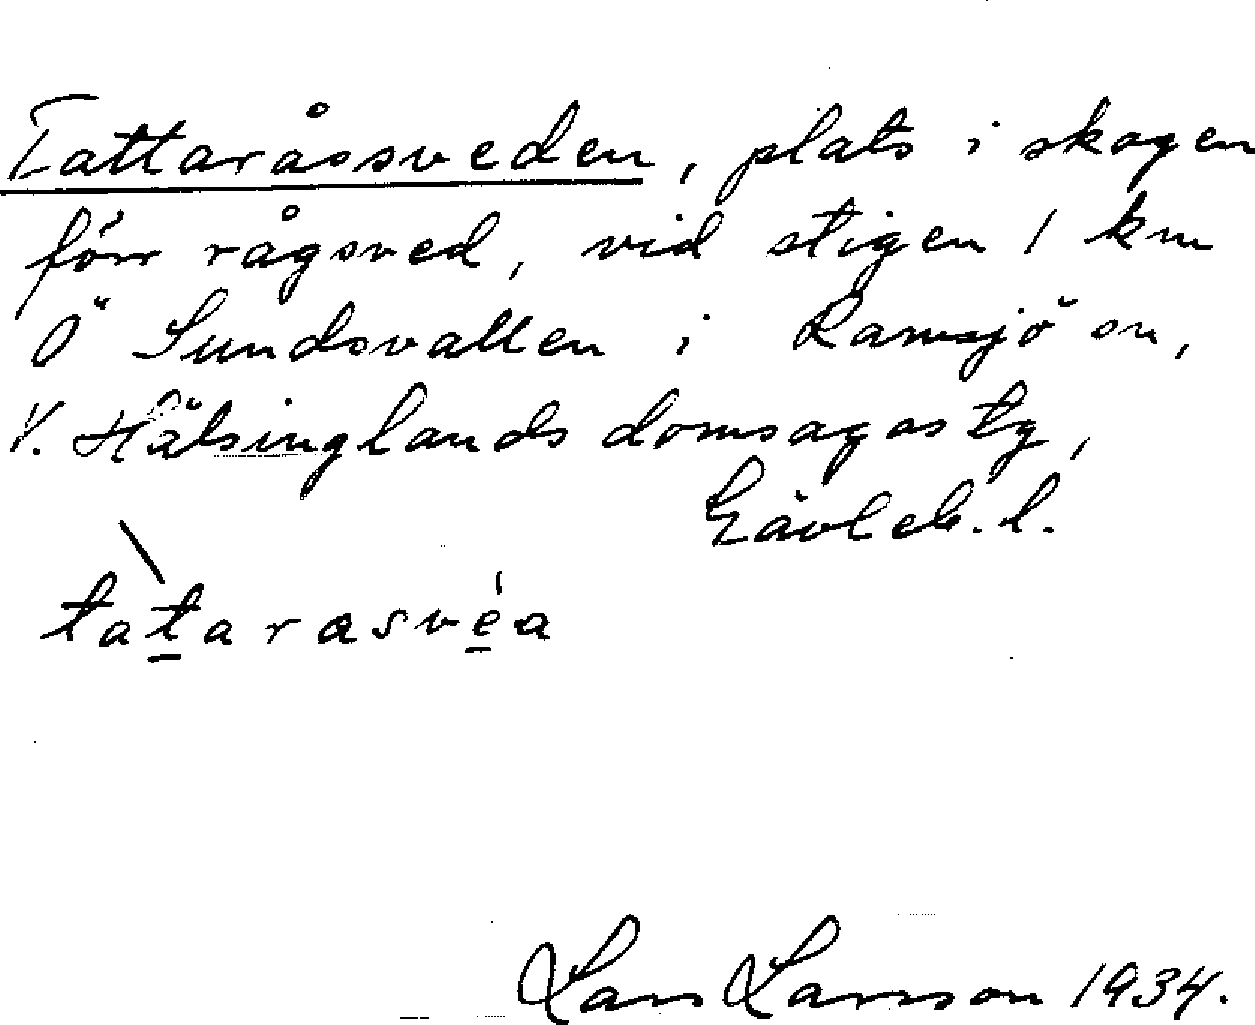 Tattaråssveden, plats i skogen
förr rågsved, vid stigen 1 km
Ö Sundsvallen i Ramsjö sn,
V. Hälsinglands domsagas tg,
Gävleb. l.
tatarasvéa
Lars Larsson 1934.